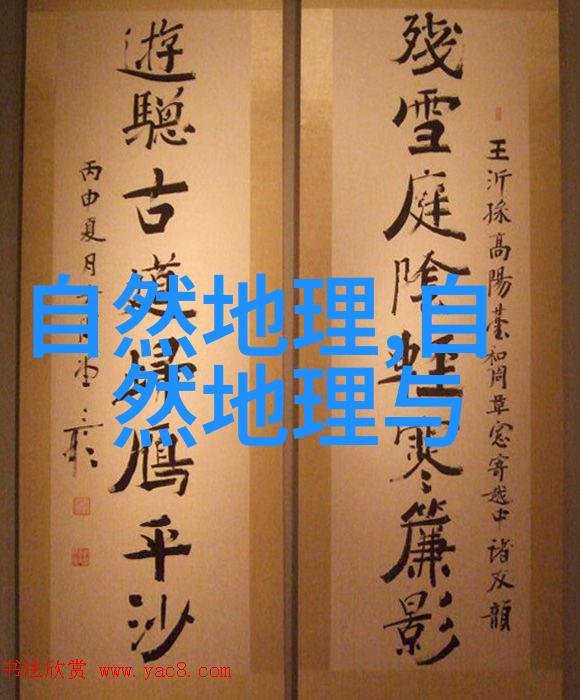 殘雪庭陰輕寒簾影
王沂孫高陽臺和周草窓寄越中諸友韻
遊驄古道歸鴈平沙
丙申夏月
自然地理,自
然地理与
书法欣赏 www.yac8.com